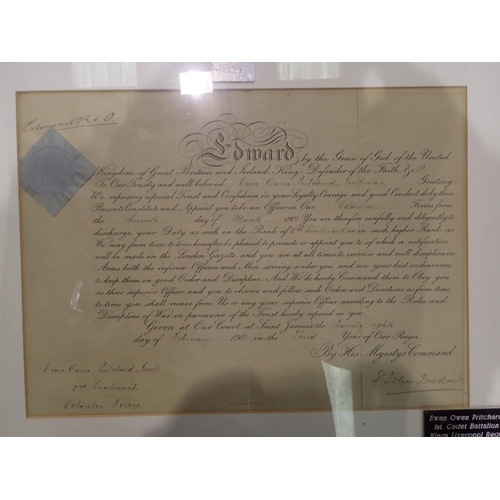 Edward R & I
Edward by the Grace of God of the United
Kingdom of Great Britain and Ireland, King, Defender of the Faith, &c.
To Our Trusty and well beloved Ewan Owen Pritchard, Gentleman Greeting
We, reposing especial Trust and Confidence in your Loyalty, Courage and good Conduct, do by these
Presents Constitute and Appoint you to be an Officer in Our Volunteer Forces from
the Seventh day of March 1903. You are therefore carefully and diligently to
discharge your Duty as such in the Rank of 2nd Lieutenant or in such higher Rank as
We may from time to time hereafter be pleased to promote or appoint you to, of which a notification
will be made in the London Gazette, and you are at all times to exercise and well discipline in
Arms both the inferior Officers and Men serving under you and use your best endeavours
to keep them in good Order and Discipline. And We do hereby Command them to Obey you
as their superior Officer, and you to observe and follow such Orders and Directions as from time
to time you shall receive from Us, or any your superior Officer, according to the Rules and
Discipline of War, in pursuance of the Trust hereby reposed in you.
Given at Our Court, at Saint James's, the Twenty eighth
day of February 1903 in the Third Year of Our Reign
By His Majesty's Command.
Ewan Owen Pritchard, Gent.
2nd Lieutenant
Volunteer Forces
St John Brodrick
Ewan Owen Pritchard
1st. Cadet Battalion
Kings Liverpool Reg